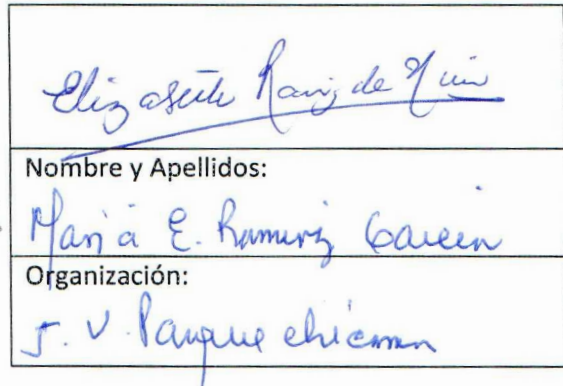 Elizabeth Ramirz de
Nombre y Apellidos:
María E. Ramirez García
Organización:
J. V. Parque